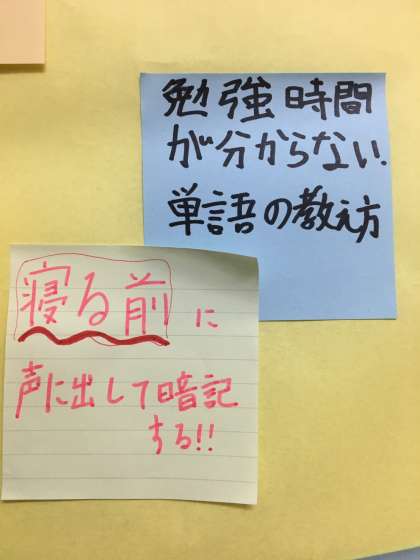 勉強時間
が分からない.
単語の教え方
寝る前に
声に出して暗記
する!!